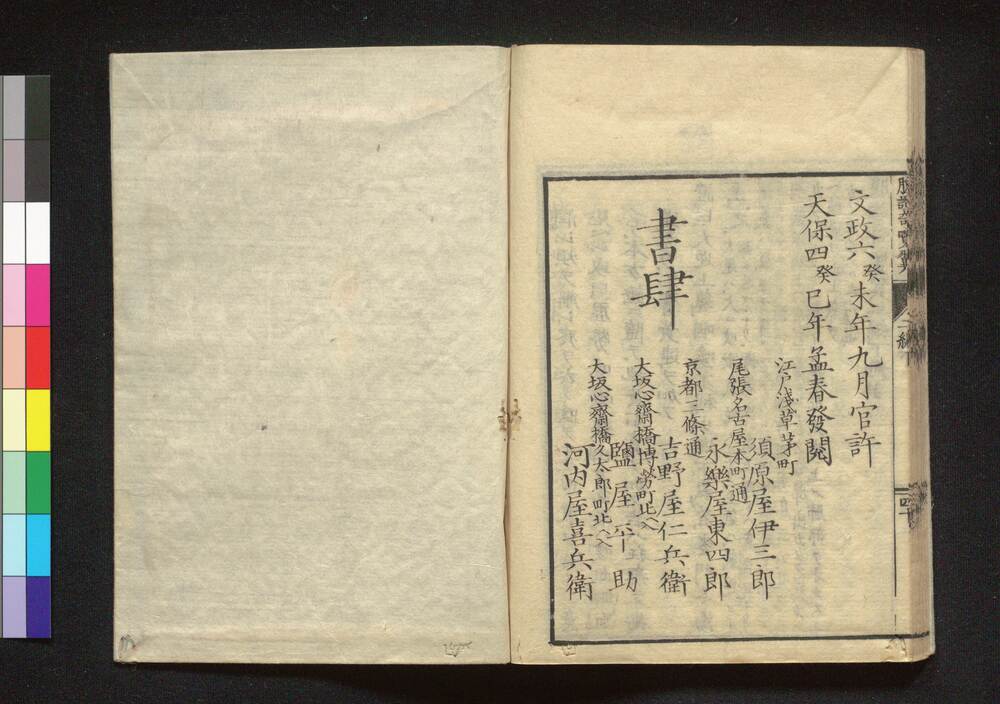 文政六癸未年九月官許
天保四癸巳年孟春發閲
書肆
江戸淺草茅町
須原屋伊三郎
尾張名古屋本町通
永樂屋東四郎
京都三條通
吉野屋仁兵衛
大坂心齋橋博勞町北へ入
鹽屋平助
大坂心齋橋久太郎町北へ入
河内屋喜兵衛